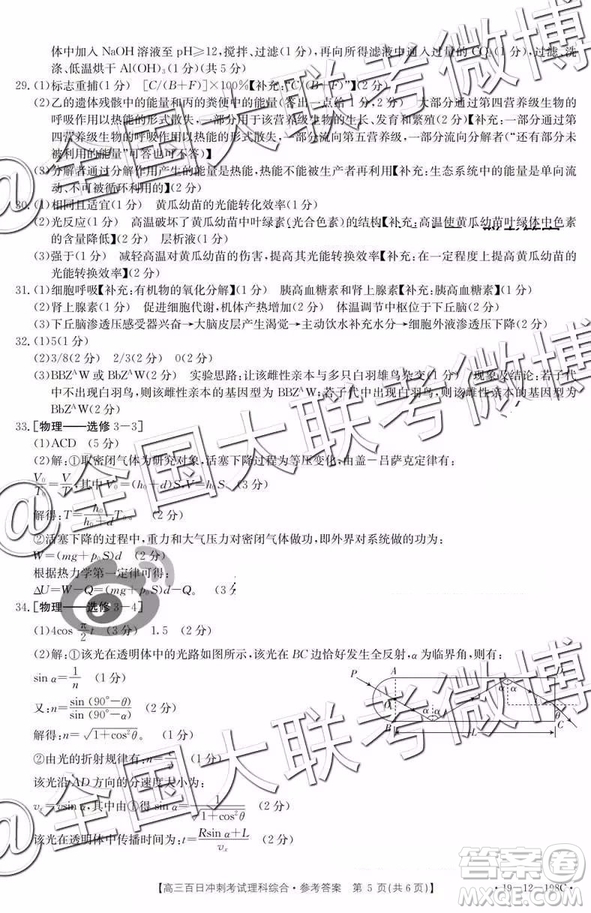 体中加入 NaOH 溶液至 pH≥12,搅拌、过滤(1 分) 向滤液中通入过量的 CO₂(1 分) 过滤、洗
涤、低温烘干 Al(OH)₃(1 分)(共 5 分)
29.(1)标志重捕(1 分) [C/(B+F)]×100%【补充:“C/(B+F)”】(2 分)
(2)乙的遗体残骸中的能量和丙的粪便中的能量(2 分) 大部分通过第四营养级生物的
呼吸作用以热能的形式散失,一部分用于自身的生长、发育和繁殖【补充:一部分通过第
四营养级生物的呼吸作用以热能的形式散失,一部分流向分解者(“还有部分未
被利用的能量”可答也可不答)】(2 分)
(3)通过分解作用产生的能量是以热能形式散失的【补充:生态系统中的能量流动是
不可循环利用的】(2 分)
30.(1)相同且适宜(1 分) 黄瓜幼苗的光能转化效率(1 分)
(2)光反应(1 分) 高温破坏了黄瓜幼苗中叶绿素(光合色素)的结构【补充:高温使黄瓜幼苗叶绿体中色素
的含量降低】(2 分) 层析液(1 分)
(3)强于(1 分) 减轻高温对黄瓜幼苗的伤害,提高光能转换效率【补充:在一定程度上提高黄瓜幼苗的
光能转换效率】(2 分)
31.(1)细胞呼吸【补充:有机物的氧化分解】(1 分) 胰高血糖素和肾上腺素【补充:胰高血糖素】(1 分)
(2)肾上腺素(1 分) 促进细胞代谢,机体产热增加(2 分) 体温调节中枢位于下丘脑(2 分)
(3)下丘脑渗透压感受器兴奋→大脑皮层产生渴觉→主动饮水补充水分→细胞外液渗透压下降(2 分)
32.(1)5(1 分)
(2)3/8(2 分) 2/3(2 分) 0(2 分)
(3)BBZᴬW 或 BbZᴬW(2 分) 实验思路:让该雌性亲本与多只白羽雄鸟杂交(1 分) 现象及结论:若子代
中不出现白羽鸟,则该雌性亲本的基因型为 BBZᴬW;若子代中出现白羽鸟,则该雌性亲本的基因型为
BbZᴬW(2 分)
33.[物理——选修 3—3]
(1)ACD (5 分)
(2)解:①取密闭气体为研究对象,活塞上升过程为等压变化,由盖—吕萨克定律有:
V₀/T₀=V/T,其中 V₀=h₀S,V=(h₀+d)S (3 分)
解得:T=(h₀+d)/h₀ T₀ (2 分)
②活塞下降过程中,重力和大气压力对密闭气体做功,即外界对系统做的功为:
W=(mg+p₀S)d (2 分)
根据热力学第一定律可得:
ΔU=W−Q=(mg+p₀S)d−Q。 (3 分)
34.[物理——选修 3—4]
(1)4cos π/2 t (3 分) 1.5 (2 分)
(2)解:①该光在透明体中的光路如图所示,该光在 BC 边恰好发生全反射,α 为临界角,则有:
sin α=1/n (1 分)
又:n=sin (90°−θ)/sin (90°−α) (2 分)
解得:n=√(1+cos²θ)。 (1 分)
②由光的折射规律有:v=c/n (1 分)
该光沿 AD 方向的分速度大小为:
vₓ=vsin α,其中由①得 sin α=1/√(1+cos²θ) (2 分)
该光在透明体中传播时间为:t=(Rsin α+L)/vₓ (2 分)
P
A
B
C
D
R
L
θ
α
α
α
【高三百日冲刺考试理科综合·参考答案 第 5 页(共 6 页)】
·19—12—198C·
@全国大联考微博
@全国大联考微博